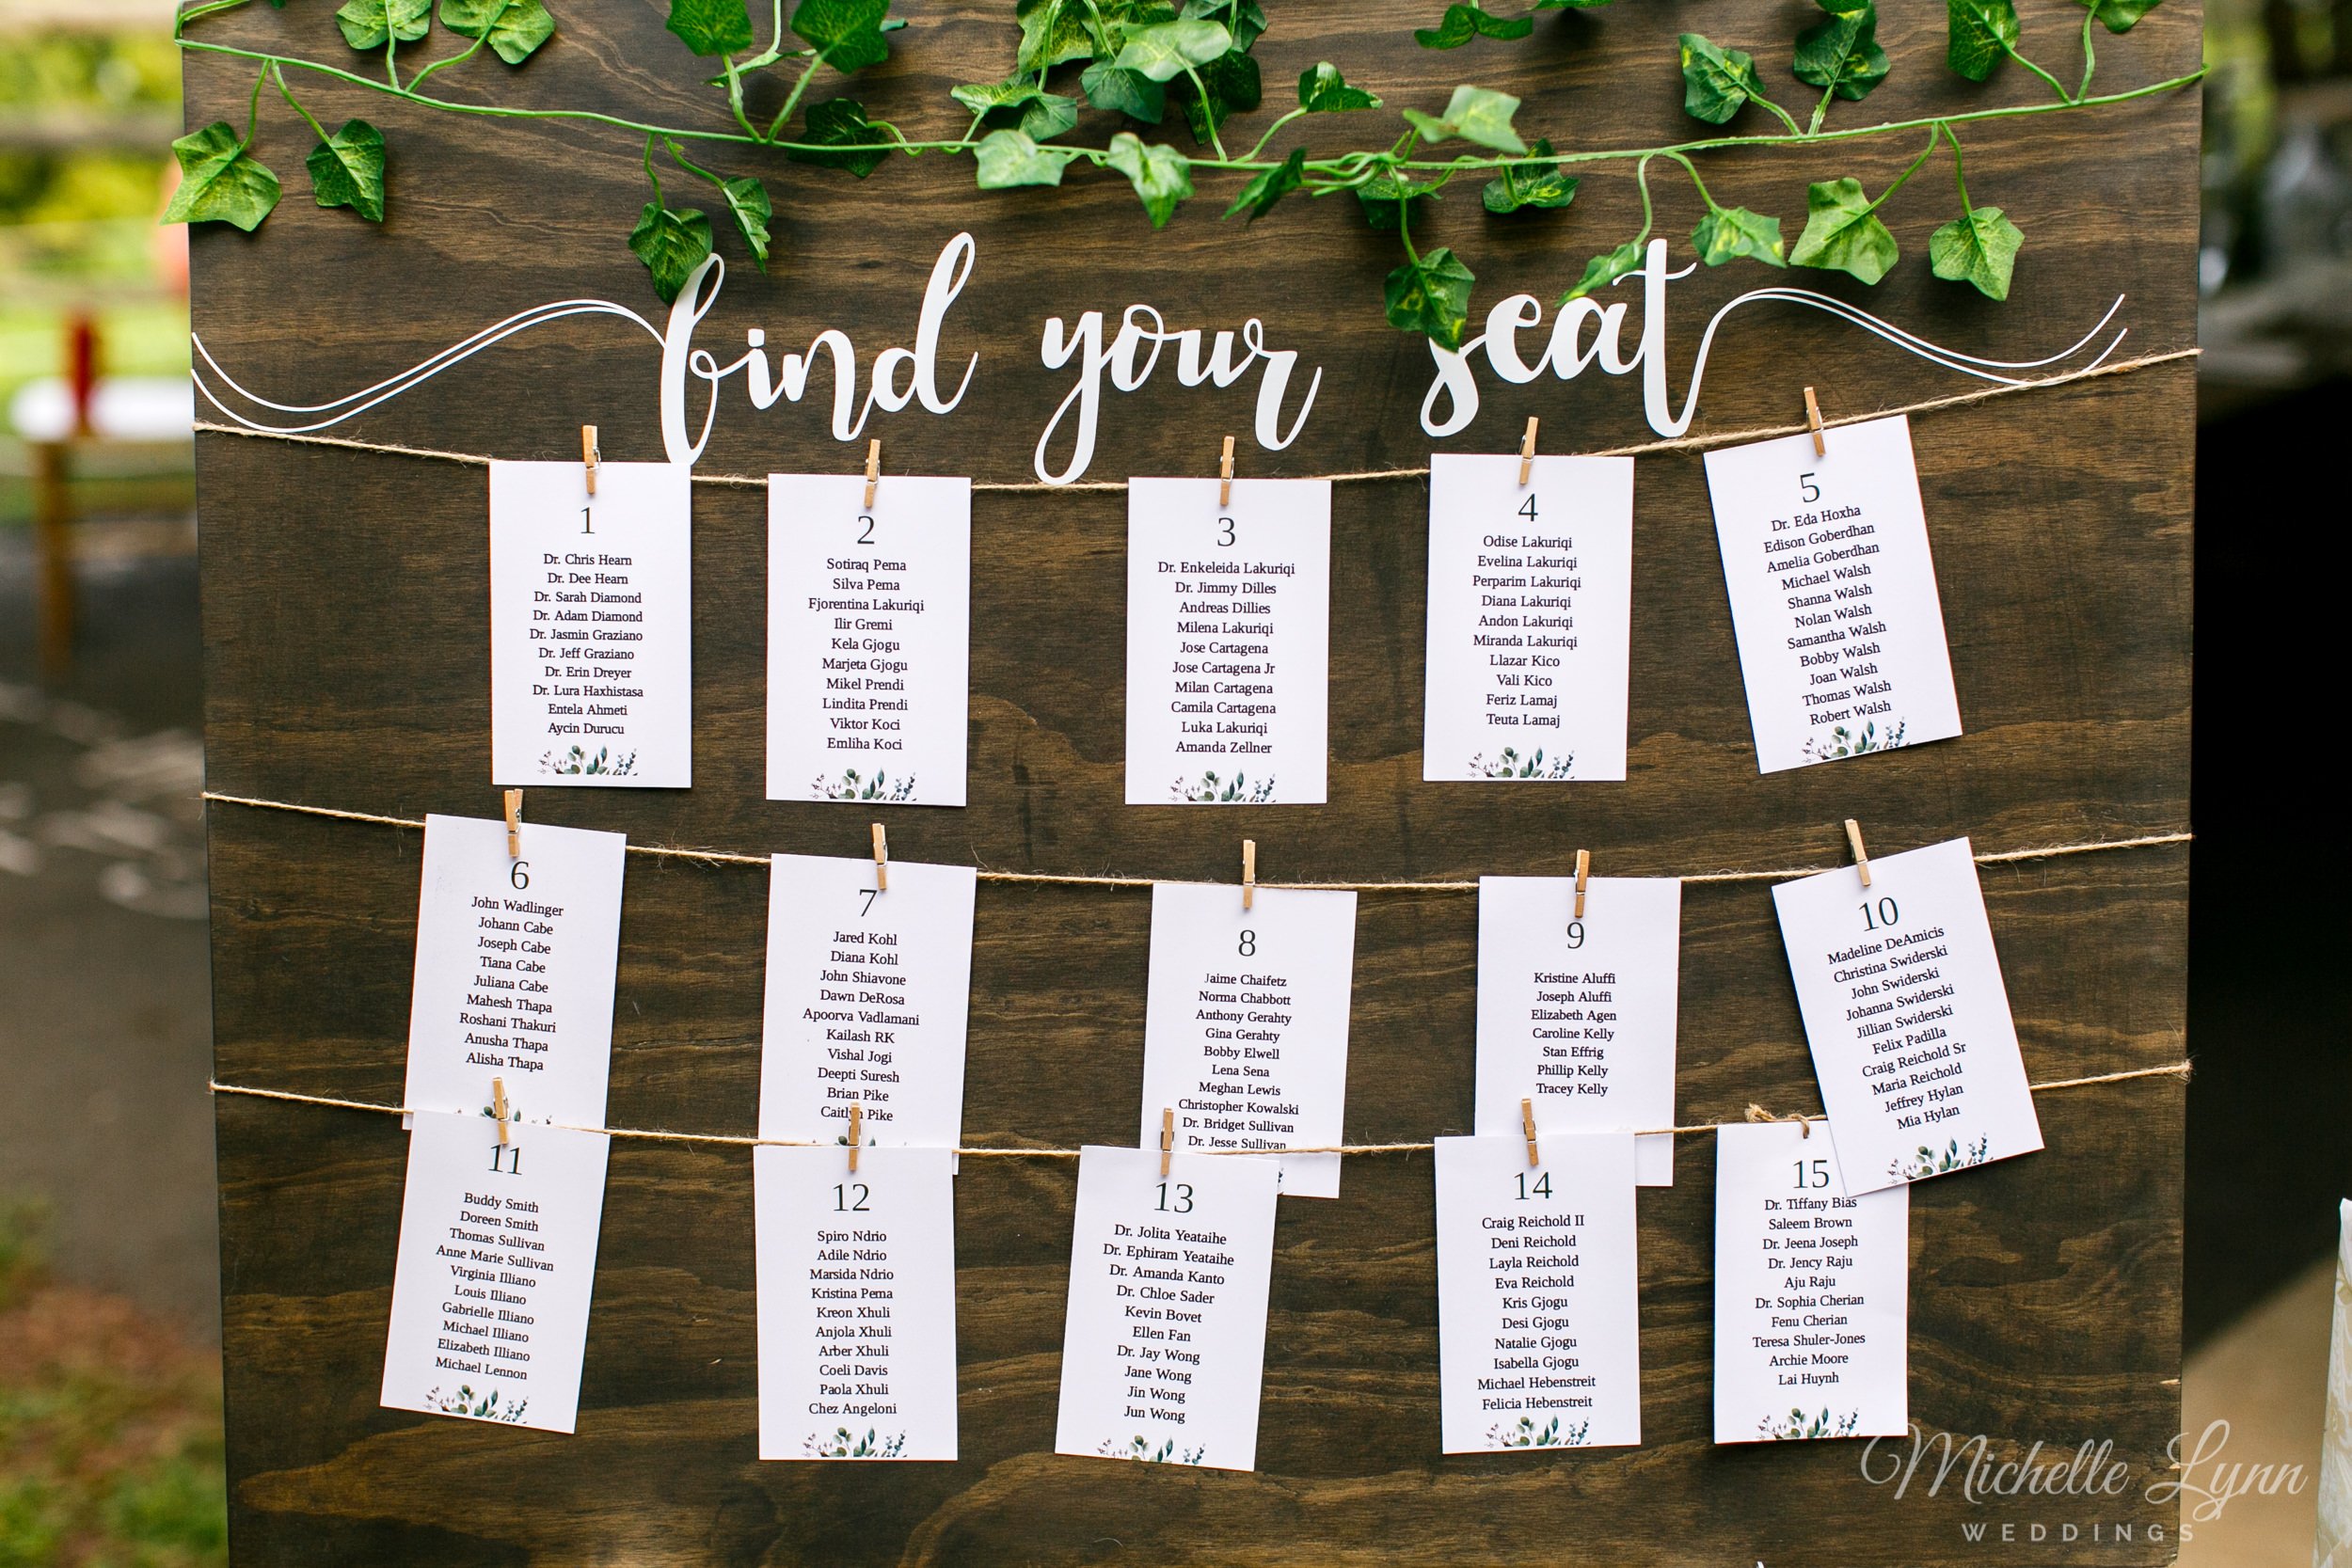 find your seat
1
Dr. Chris Hearn
Dr. Dee Hearn
Dr. Sarah Diamond
Dr. Adam Diamond
Dr. Jasmin Graziano
Dr. Jeff Graziano
Dr. Erin Dreyer
Dr. Lura Haxhistasa
Entela Ahmeti
Aycin Durucu
2
Sotiraq Pema
Silva Pema
Fjorentina Lakuriqi
Ilir Gremi
Kela Gjogu
Marjeta Gjogu
Mikel Prendi
Lindita Prendi
Viktor Koci
Emliha Koci
3
Dr. Enkeleida Lakuriqi
Dr. Jimmy Dilles
Andreas Dillies
Milena Lakuriqi
Jose Cartagena
Jose Cartagena Jr
Milan Cartagena
Camila Cartagena
Luka Lakuriqi
Amanda Zellner
4
Odise Lakuriqi
Evelina Lakuriqi
Perparim Lakuriqi
Diana Lakuriqi
Andon Lakuriqi
Miranda Lakuriqi
Llazar Kico
Vali Kico
Feriz Lamaj
Teuta Lamaj
5
Dr. Eda Hoxha
Edison Goberdhan
Amelia Goberdhan
Michael Walsh
Shanna Walsh
Nolan Walsh
Samantha Walsh
Bobby Walsh
Joan Walsh
Thomas Walsh
Robert Walsh
6
John Wadlinger
Johann Cabe
Joseph Cabe
Tiana Cabe
Juliana Cabe
Mahesh Thapa
Roshani Thakuri
Anusha Thapa
Alisha Thapa
7
Jared Kohl
Diana Kohl
John Shiavone
Dawn DeRosa
Apoorva Vadlamani
Kailash RK
Vishal Jogi
Deepti Suresh
Brian Pike
Caitlyn Pike
8
Jaime Chaifetz
Norma Chabbott
Anthony Gerahty
Gina Gerahty
Bobby Elwell
Lena Sena
Meghan Lewis
Christopher Kowalski
Dr. Bridget Sullivan
Dr. Jesse Sullivan
9
Kristine Aluffi
Joseph Aluffi
Elizabeth Agen
Caroline Kelly
Stan Effrig
Phillip Kelly
Tracey Kelly
10
Madeline DeAmicis
Christina Swiderski
John Swiderski
Johanna Swiderski
Jillian Swiderski
Felix Padilla
Craig Reichold Sr
Maria Reichold
Jeffrey Hylan
Mia Hylan
11
Buddy Smith
Doreen Smith
Thomas Sullivan
Anne Marie Sullivan
Virginia Illiano
Louis Illiano
Gabrielle Illiano
Michael Illiano
Elizabeth Illiano
Michael Lennon
12
Spiro Ndrio
Adile Ndrio
Marsida Ndrio
Kristina Pema
Kreon Xhuli
Anjola Xhuli
Arber Xhuli
Coeli Davis
Paola Xhuli
Chez Angeloni
13
Dr. Jolita Yeataihe
Dr. Ephiram Yeataihe
Dr. Amanda Kanto
Dr. Chloe Sader
Kevin Bovet
Ellen Fan
Dr. Jay Wong
Jane Wong
Jin Wong
Jun Wong
14
Craig Reichold II
Deni Reichold
Layla Reichold
Eva Reichold
Kris Gjogu
Desi Gjogu
Natalie Gjogu
Isabella Gjogu
Michael Hebenstreit
Felicia Hebenstreit
15
Dr. Tiffany Bias
Saleem Brown
Dr. Jeena Joseph
Dr. Jency Raju
Aju Raju
Dr. Sophia Cherian
Fenu Cherian
Teresa Shuler-Jones
Archie Moore
Lai Huynh
Michelle Lynn
WEDDINGS